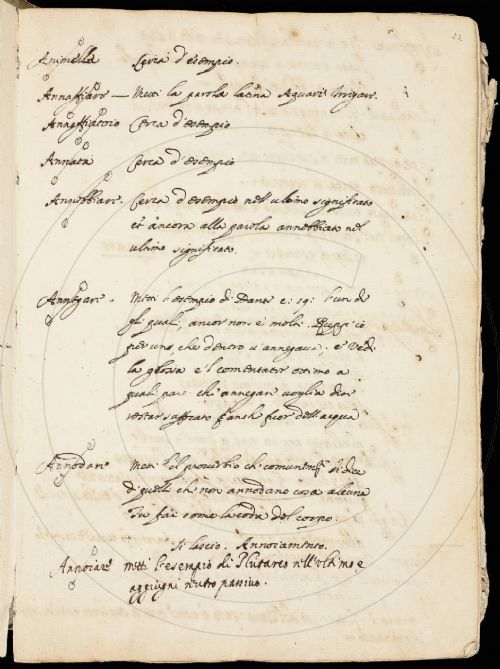 22
Animella Cerca d'esempio.
Annaffiare — Metti la parola latina Aquari Irrigare.
Annaffiatoio Cerca d'esempio
Annata Cerca d'esempio
Annebbiare. Cerca d'esempio nell'ultimo significato
et ancora alla parola annebbiato nel
ultimo significato.
Annegare. Metti l'esempio di Dante c: 19: l'un de
gli quali, ancor non è molt.
per uno, che dentro v'annegava. e vedi
la glosa e'l comentator ottimo a
quali pare che annegar voglia dire
restar suffocato fuor dell'acqua
Annodare Metti il proverbio che si dice
di quelli che non annodano cosa alcuna
Tu fai come la coda del corpo.
Si lascio. Annoiamento.
Annoiare metti l'esempio di Plutarco nell'ultimo, e
aggiugni neutro passivo.